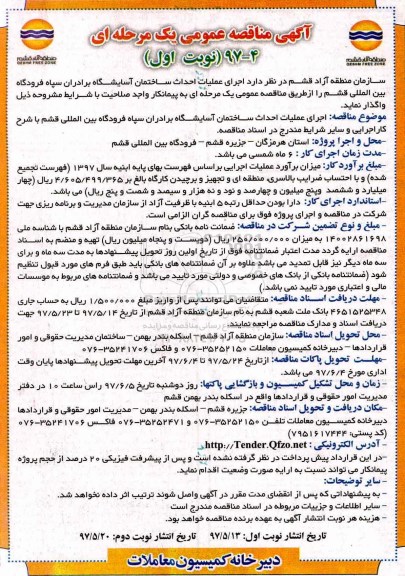 آگهی مناقصه عمومی یک مرحله ای
۹۷-۴ (نوبت اول)
منطقه آزاد قشم
QESHM FREE ZONE
منطقه آزاد قشم
QESHM FREE ZONE
سازمان منطقه آزاد قشم در نظر دارد اجرای عملیات احداث ساختمان آسایشگاه برادران سپاه فرودگاه
بین المللی قشم را ازطریق مناقصه عمومی یک مرحله ای به پیمانکار واجد صلاحیت با شرایط مشروحه ذیل
واگذار نماید.
موضوع مناقصه: اجرای عملیات احداث ساختمان آسایشگاه برادران سپاه فرودگاه بین المللی قشم با شرح
کاراجرایی و سایر شرایط مندرج در اسناد مناقصه.
-محل و اجرا پروژه: استان هرمزگان – جزیره قشم – فرودگاه بین المللی قشم
-مدت زمان اجرای کار: ۶ ماه شمسی می باشد.
-مبلغ برآورد کار: میزان برآورد عملیات اجرایی براساس فهرست بهای پایه ابنیه سال ۱۳۹۷ (فهرست تجمیع
شده) و با احتساب ضرایب بالاسری، منطقه ای و تجهیز و برچیدن کارگاه بالغ بر ۴/۶۰۵/۴۹۹/۳۶۵ ریال (چهار
میلیارد و ششصد وپنج میلیون و چهارصد و نود و نه هزار و سیصد و شصت و پنج ریال) می باشد.
-استاندارد اجرای کار: دارا بودن حداقل رتبه ۵ ابنیه با ظرفیت آزاد از سازمان مدیریت و برنامه ریزی جهت
شرکت در مناقصه و اجرای پروژه فوق برای مناقصه گران الزامی است.
-مبلغ و نوع تضمین شرکت در مناقصه: ضمانت نامه بانکی بنام سازمان منطقه آزاد قشم با شناسه ملی
۱۴۰۰۲۸۶۱۶۹۸ به میزان ۲۵۰/۰۰۰/۰۰۰ ریال (دویست و پنجاه میلیون ریال) تهیه و منضم به اسناد
مناقصه ارایه گردد مدت اعتبار ضمانتنامه فوق از تاریخ اولین روز تحویل پیشنهادها به مدت سه ماه و برای
سه ماه دیگر نیز قابل تمدید می باشد علاوه بر آن ضمانتنامه های بانکی باید طبق فرم های مورد قبول تنظیم
شود (ضمانتنامه بانکی از بانک های خصوصی و دولتی مورد تایید می باشد و ضمانتنامه های مربوط به موسسات
مالی و اعتباری مورد تایید نمی باشد.)
-مهلت دریافت اسناد مناقصه: متقاضیان می توانند پس از واریز مبلغ ۱/۵۰۰/۰۰۰ ریال به حساب جاری
۴۶۵۱۵۲۵۳۴۸ بانک ملت شعبه قشم به نام سازمان منطقه آزاد قشم از تاریخ ۹۷/۵/۱۴ تا ۹۷/۵/۲۳ جهت
دریافت اسناد و مدارک مناقصه مراجعه نمایند.
-محل تحویل اسناد مناقصه: سازمان منطقه آزاد قشم – اسکله بندر بهمن – ساختمان مدیریت حقوقی و امور
قراردادها – دبیرخانه کمیسیون معاملات ۳۵۲۵۲۱۵۰-۰۷۶ و فاکس ۳۵۲۴۱۷۰۶-۰۷۶
-مهلت تحویل پاکات مناقصه: ازتاریخ ۹۷/۵/۲۴ تا ۹۷/۶/۴ آخرین مهلت تحویل پیشنهادها پایان وقت
اداری مورخ ۹۷/۶/۴ می باشد.
- زمان و محل تشکیل کمیسیون و بازگشایی پاکتها: روز دوشنبه تاریخ ۹۷/۶/۵ راس ساعت ۱۰ در دفتر
مدیریت امور حقوقی و قراردادها واقع در اسکله بندر بهمن قشم
-مکان دریافت و تحویل اسناد مناقصه: جزیره قشم – اسکله بندر بهمن – مدیریت امور حقوقی و قراردادها
دبیرخانه کمیسیون معاملات تلفن ۳۵۲۵۲۱۵۰-۰۷۶ و ۳۵۲۵۲۴۷۱-۰۷۶ فاکس ۳۵۲۴۱۷۰۶-۰۷۶
(کد پستی: ۷۹۵۱۶۱۷۴۴۴)
-آدرس الکترونیکی: http://Tender.Qfzo.net
-در این قرارداد پیش پرداخت در نظر گرفته نشده است و پس از پیشرفت فیزیکی ۲۰ درصد از حجم پروژه
پیمانکار می تواند نسبت به ارایه صورت وضعیت اقدام نماید.
-سایر توضیحات:
- به پیشنهاداتی که پس از انقضای مدت مقرر در آگهی واصل شوند ترتیب اثر داده نخواهد شد.
- سایر اطلاعات و جزییات مربوطه در اسناد مناقصه مندرج است
- هزینه هر نوبت انتشار آگهی به عهده برنده مناقصه خواهد بود.
تاریخ انتشار نوبت اول: ۹۷/۵/۱۳ تاریخ انتشار نوبت دوم: ۹۷/۵/۲۰
دبیرخانه کمیسیون معاملات